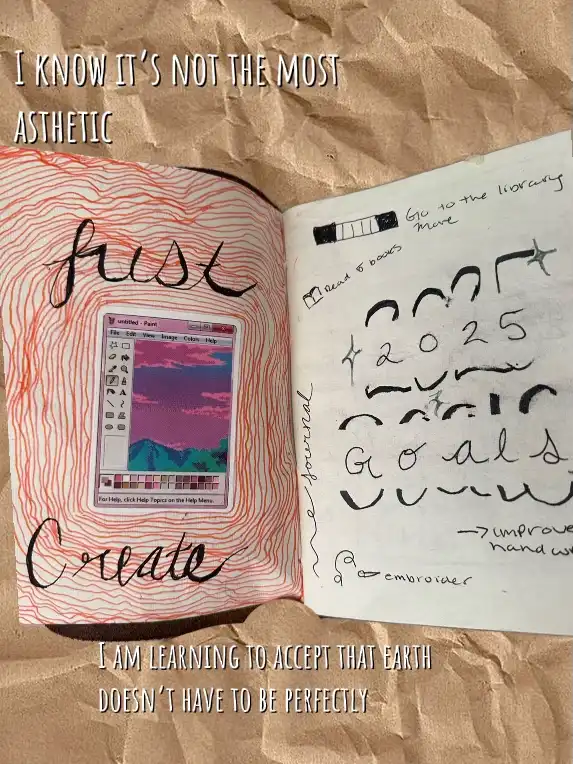 I KNOW IT'S NOT THE MOST
ASTHETIC
Just
untitled - Paint
File Edit View Image Colors Help
For Help, click Help Topics on the Help Menu.
Create
Go to the library
more
Read 5 books
2025
Goals
me journal
→ improve
hand w
embroider
I AM LEARNING TO ACCEPT THAT EARTH
DOESN'T HAVE TO BE PERFECTLY